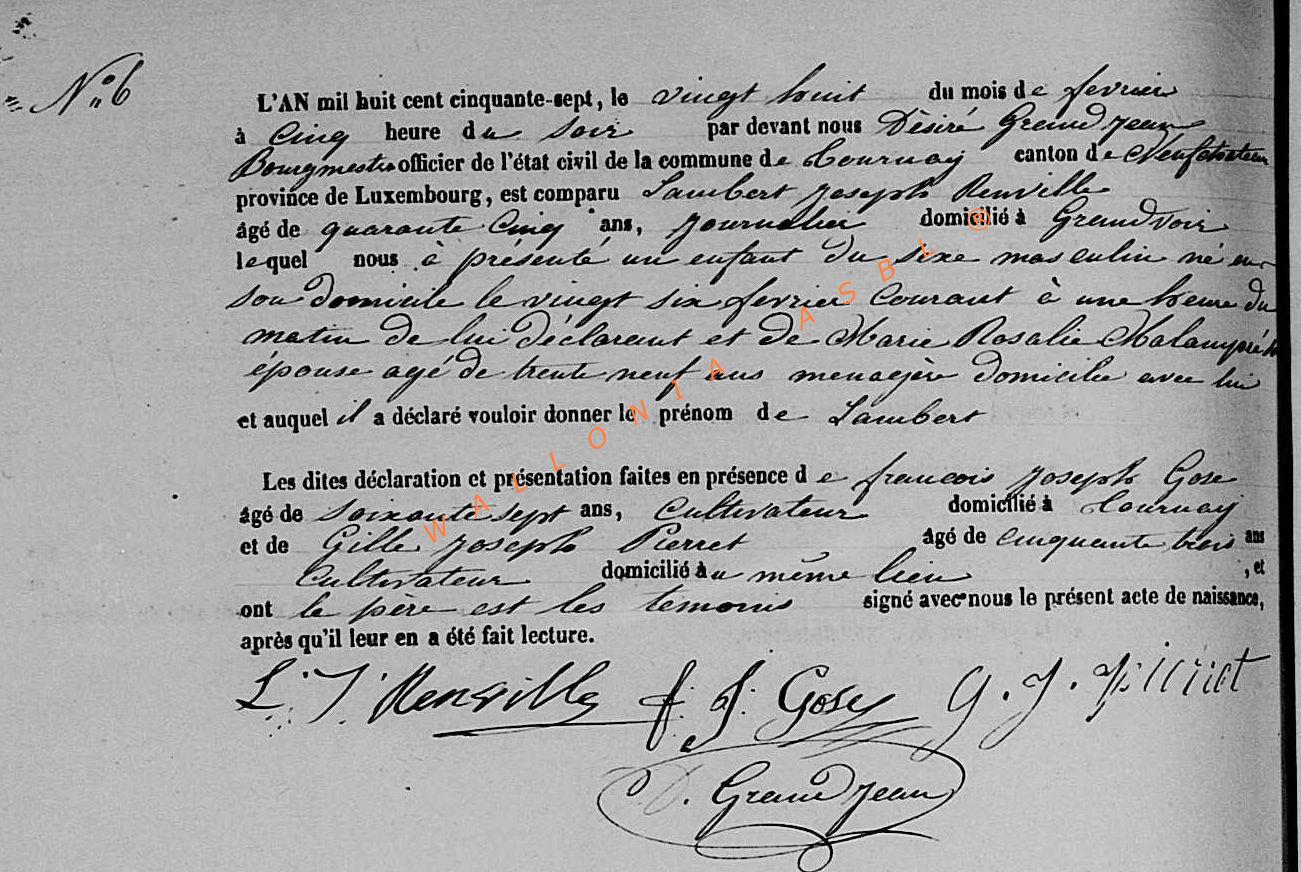 N° 6
L'AN mil huit cent cinquante-sept, le vingt huit du mois de fevrier
à Cinq heure du soir par devant nous Dèsiré Grandjean
Bourgmestre officier de l'état civil de la commune de Tournay canton de Neufchateau
province de Luxembourg, est comparu Lambert Joseph Renville
âgé de quarante Cinq ans, Journalier domicilié à Grandvoir
lequel nous à présenté un enfant du sixe masculin né en
son domicile le vingt six fevrier Courant à une heure du
matin de lui déclarant et de Marie Rosalie
épouse agé de trente neuf ans menagère domicilie avec lui
et auquel il a déclaré vouloir donner le prénom de Lambert
Les dites déclaration et présentation faites en présence de francois Joseph Gose
âgé de Soixante sept ans, Cultivateur domicilié à Tournay
et de Gille Joseph Pierret âgé de cinquante trois ans
Cultivateur domicilié au même lieu , et
ont le père est les temoins signé avec nous le présent acte de naissance,
après qu'il leur en a été fait lecture.
L. J. Renville f. J. Gosey G. J. Pierret
D. Grandjean
WALLONIA ASBL ©